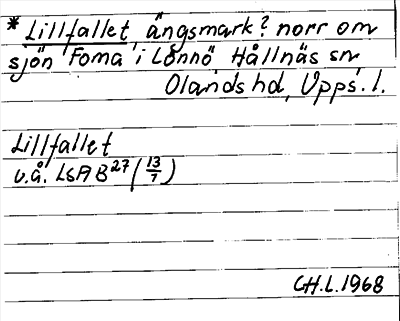 *Lillfallet ängsmark? norr om
sjön Foma i Lönnö Hållnäs sn,
Olands hd, Upps. l.
Lillfallet
u.å. LSA B27 (13/7)
CH.L.1968